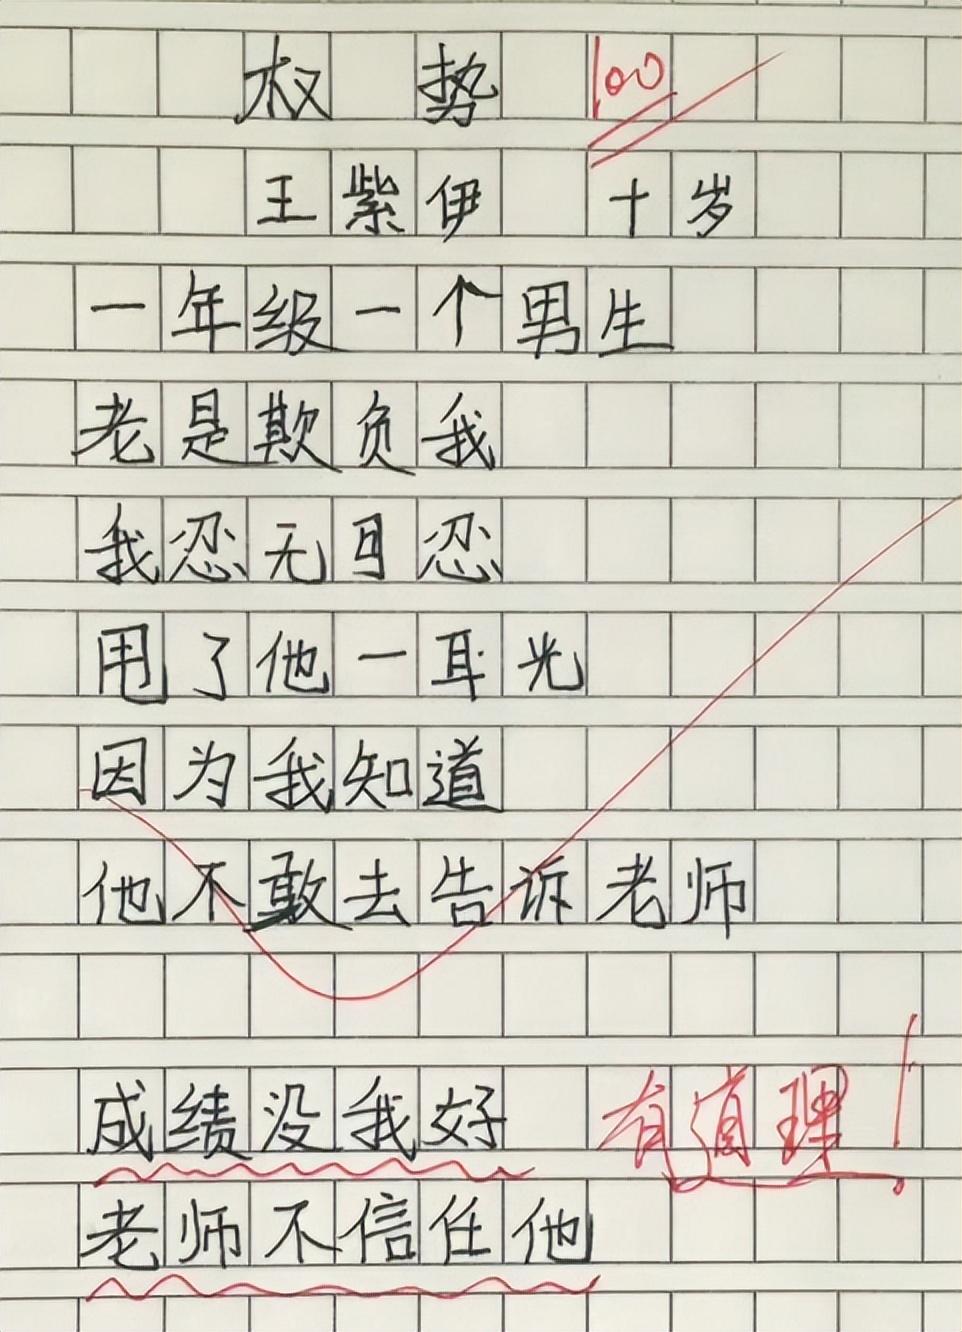 权势 100
王紫伊 十岁
一年级一个男生
老是欺负我
我忍无可忍
甩了他一耳光
因为我知道
他不敢去告诉老师
成绩没我好 有道理!
老师不信任他